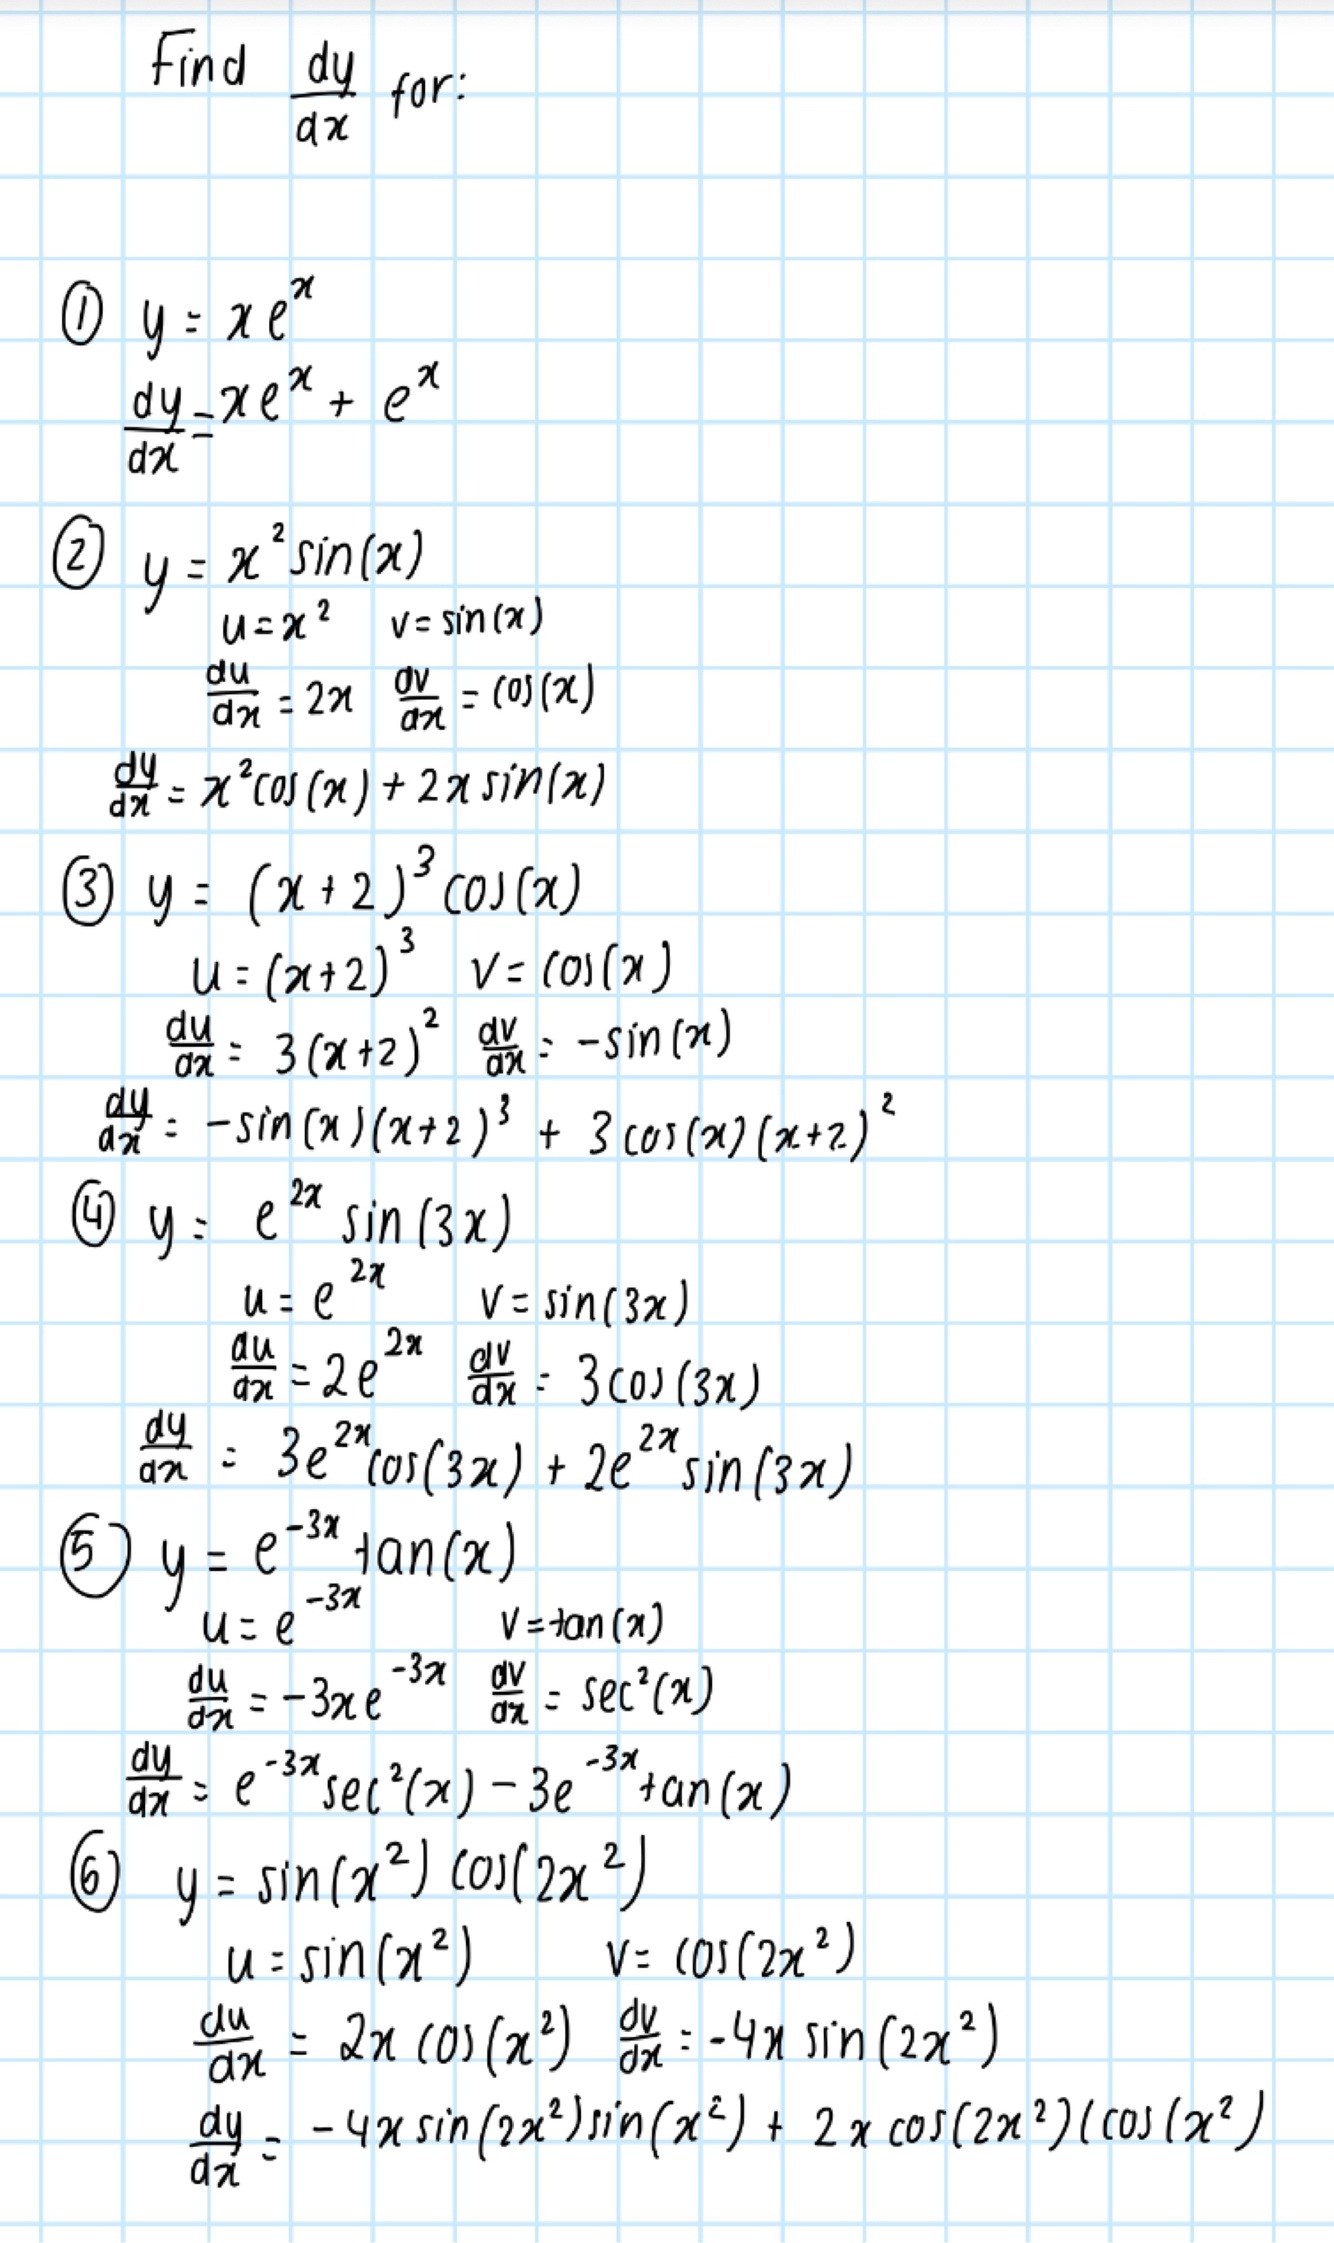 Find dy/dx for:
① y = xe^x
dy/dx = xe^x + e^x
② y = x^2 sin(x)
u = x^2 v = sin(x)
du/dx = 2x dv/dx = cos(x)
dy/dx = x^2 cos(x) + 2x sin(x)
③ y = (x+2)^3 cos(x)
u = (x+2)^3 v = cos(x)
du/dx = 3(x+2)^2 dv/dx = -sin(x)
dy/dx = -sin(x)(x+2)^3 + 3cos(x)(x+2)^2
④ y = e^2x sin(3x)
u = e^2x v = sin(3x)
du/dx = 2e^2x dv/dx = 3cos(3x)
dy/dx = 3e^2x cos(3x) + 2e^2x sin(3x)
⑤ y = e^-3x tan(x)
u = e^-3x v = tan(x)
du/dx = -3xe^-3x dv/dx = sec^2(x)
dy/dx = e^-3x sec^2(x) - 3e^-3x tan(x)
⑥ y = sin(x^2) cos(2x^2)
u = sin(x^2) v = cos(2x^2)
du/dx = 2x cos(x^2) dv/dx = -4x sin(2x^2)
dy/dx = -4x sin(2x^2) sin(x^2) + 2x cos(2x^2)(cos(x^2)